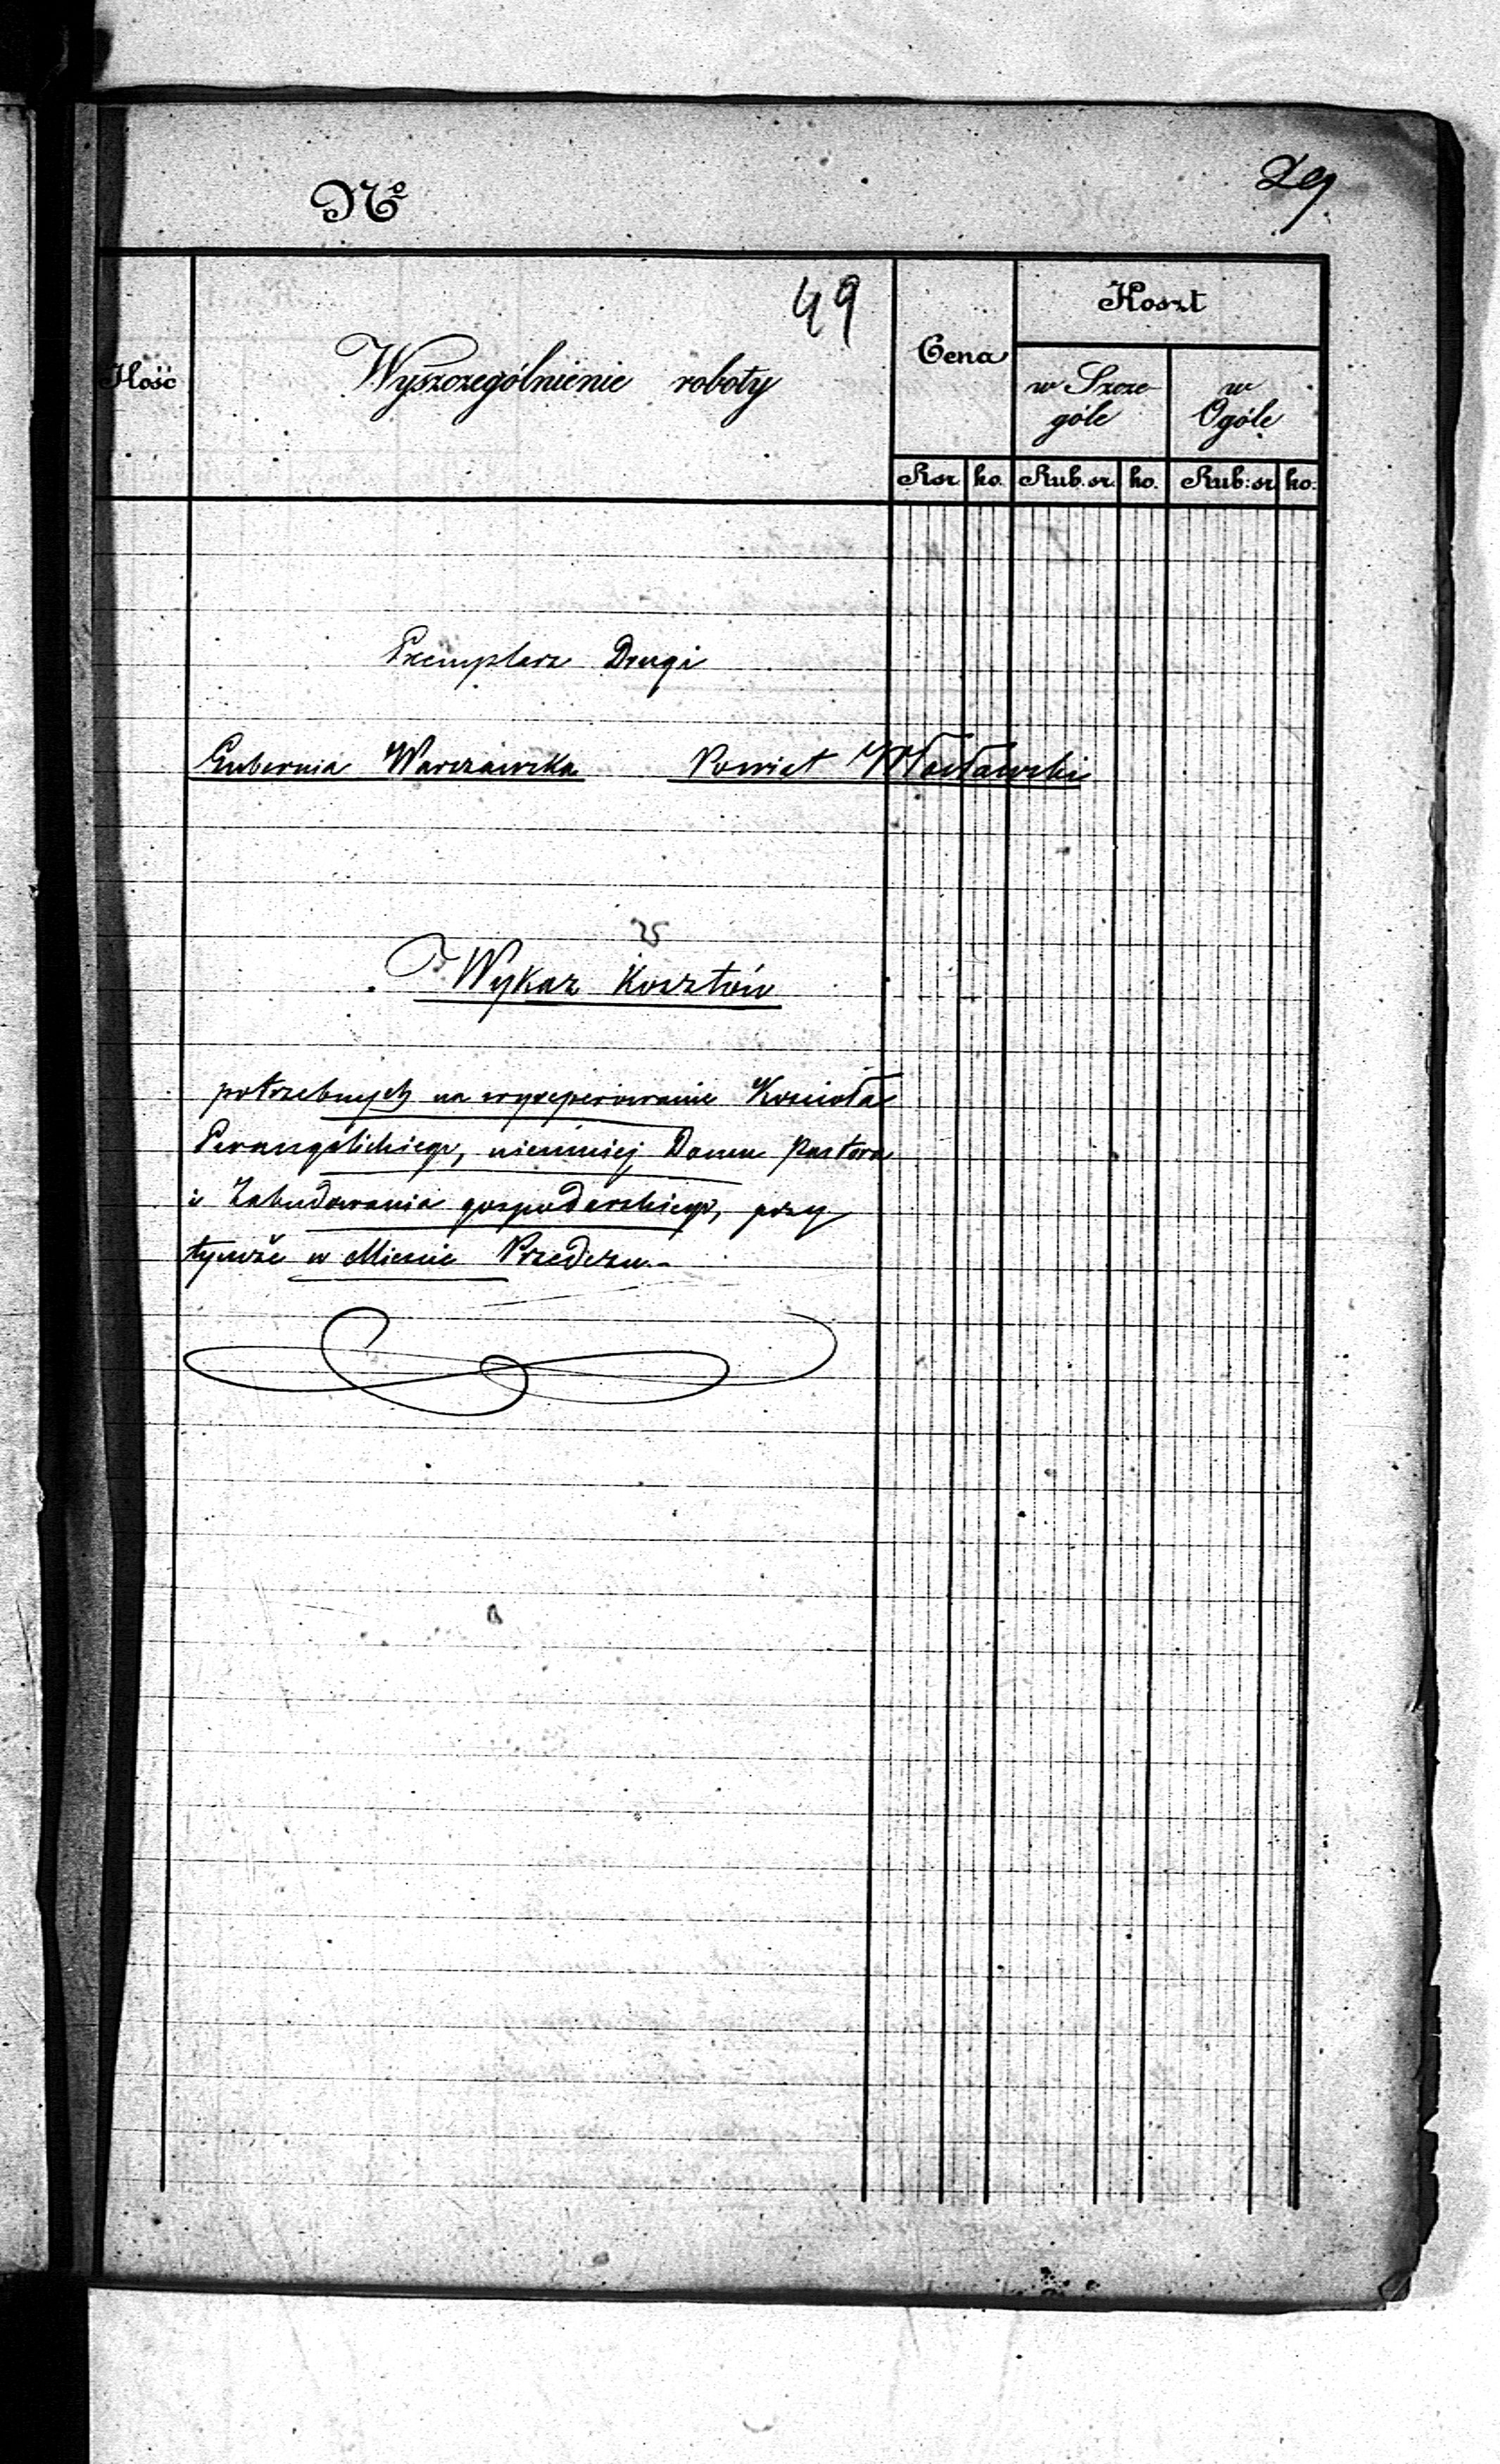 No
29
49
Ilość
Wyszczególnienie roboty
Cena
Koszt
w Szcze-
góle
w
Ogóle
Rsr. ko. Rub. sr. ko. Rub: sr. ko:
Exemplarz Drugi
Gubernia Warszawska Powiat Włocławski
Wykaz Kosztów
potrzebnych na wyreperowanie Kościoła
Ewangelickiego, niemniej Domu Pastora
i Zabudowania gospodarskiego, przy
tymże w Mieście Przedczu.